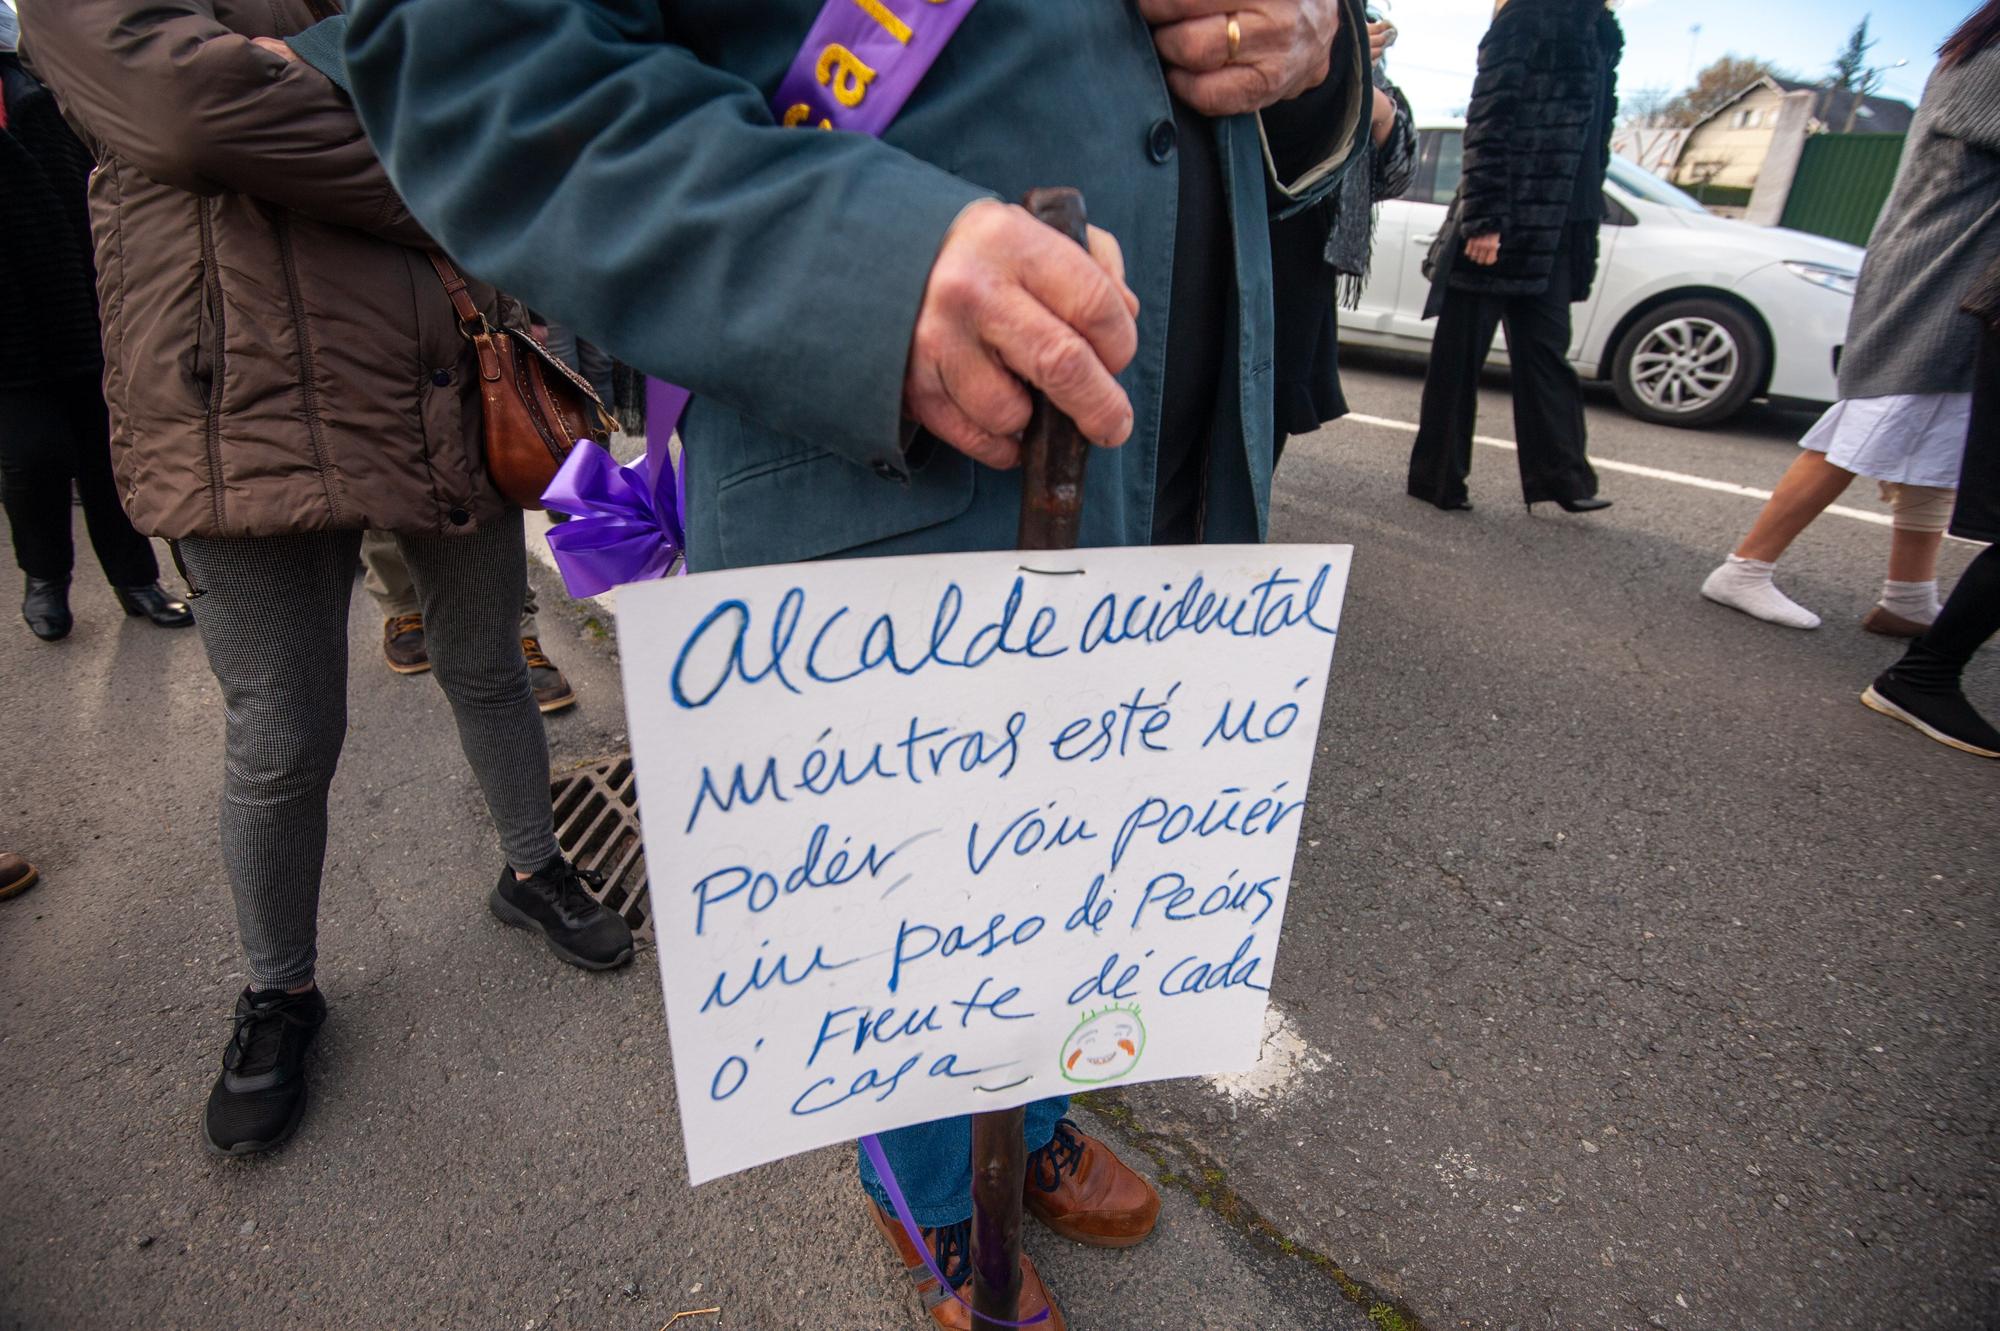 Sala
Alcalde acidental
méntras esté nó
podér vón poñér
un paso dé Peóns
ó Frente dé cada
casa